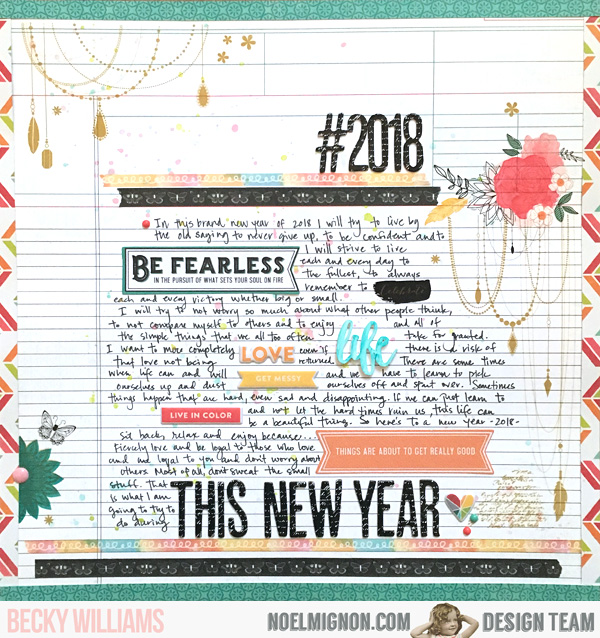 #2018
In this brand new year of 2018 I will try to live by
the old saying to never give up, to be confident and to
I will strive to live
BE FEARLESS
IN THE PURSUIT OF WHAT SETS YOUR SOUL ON FIRE
each and every day to
the fullest, to always
remember to celebrate
each and every victory whether big or small.
I will try to not worry so much about what other people think,
to not compare myself to others and to enjoy life and all of
the simple things that we all too often take for granted.
I want to more completely LOVE even if there is a risk of
that love not being returned. There are some times
when life can and will GET MESSY and we have to learn to pick
ourselves up and dust ourselves off and start over. Sometimes
things happen that are hard, even sad and disappointing. If we can just learn to
LIVE IN COLOR and not let the hard times ruin us, this life can
be a beautiful thing. So here's to a new year - 2018 -
Sit back, relax and enjoy because...
THINGS ARE ABOUT TO GET REALLY GOOD.
Fiercely love and be loyal to those who love
and are loyal to you and don't worry about
others. Most of all, dont sweat the small
stuff. That
is what I am
going to try to
do during
THIS NEW YEAR
BECKY WILLIAMS
NOELMIGNON.COM DESIGN TEAM